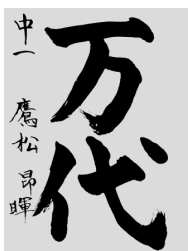 万代
中一 鷹松 昂暉